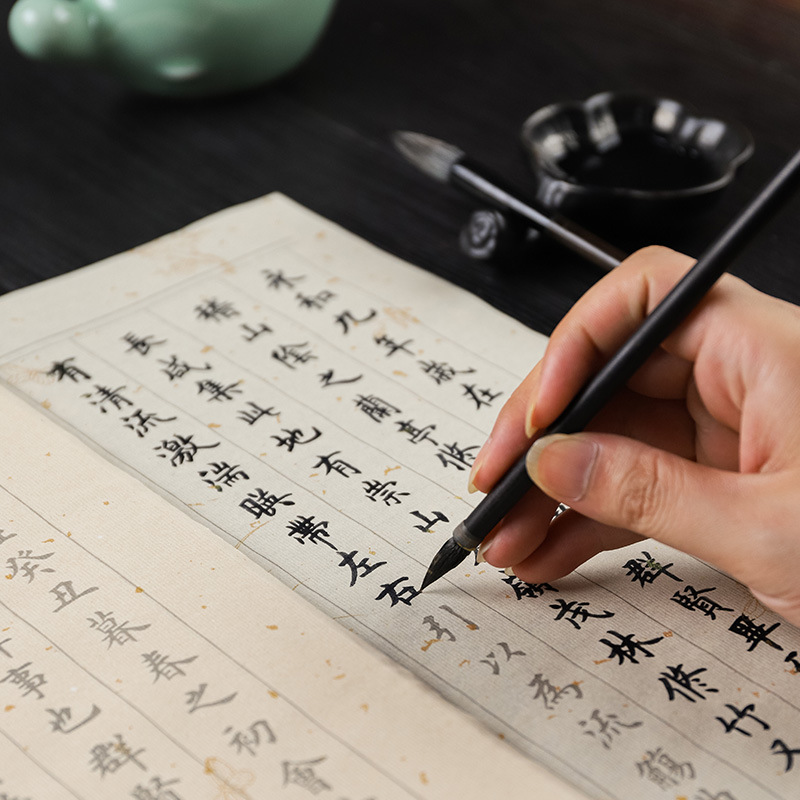 永和九年歲在
稽山陰之蘭亭脩群賢畢
長咸集此地有崇山茂林脩竹又
有清流激湍暎帶左右引以為流觴
癸丑暮春之初會
事也群賢